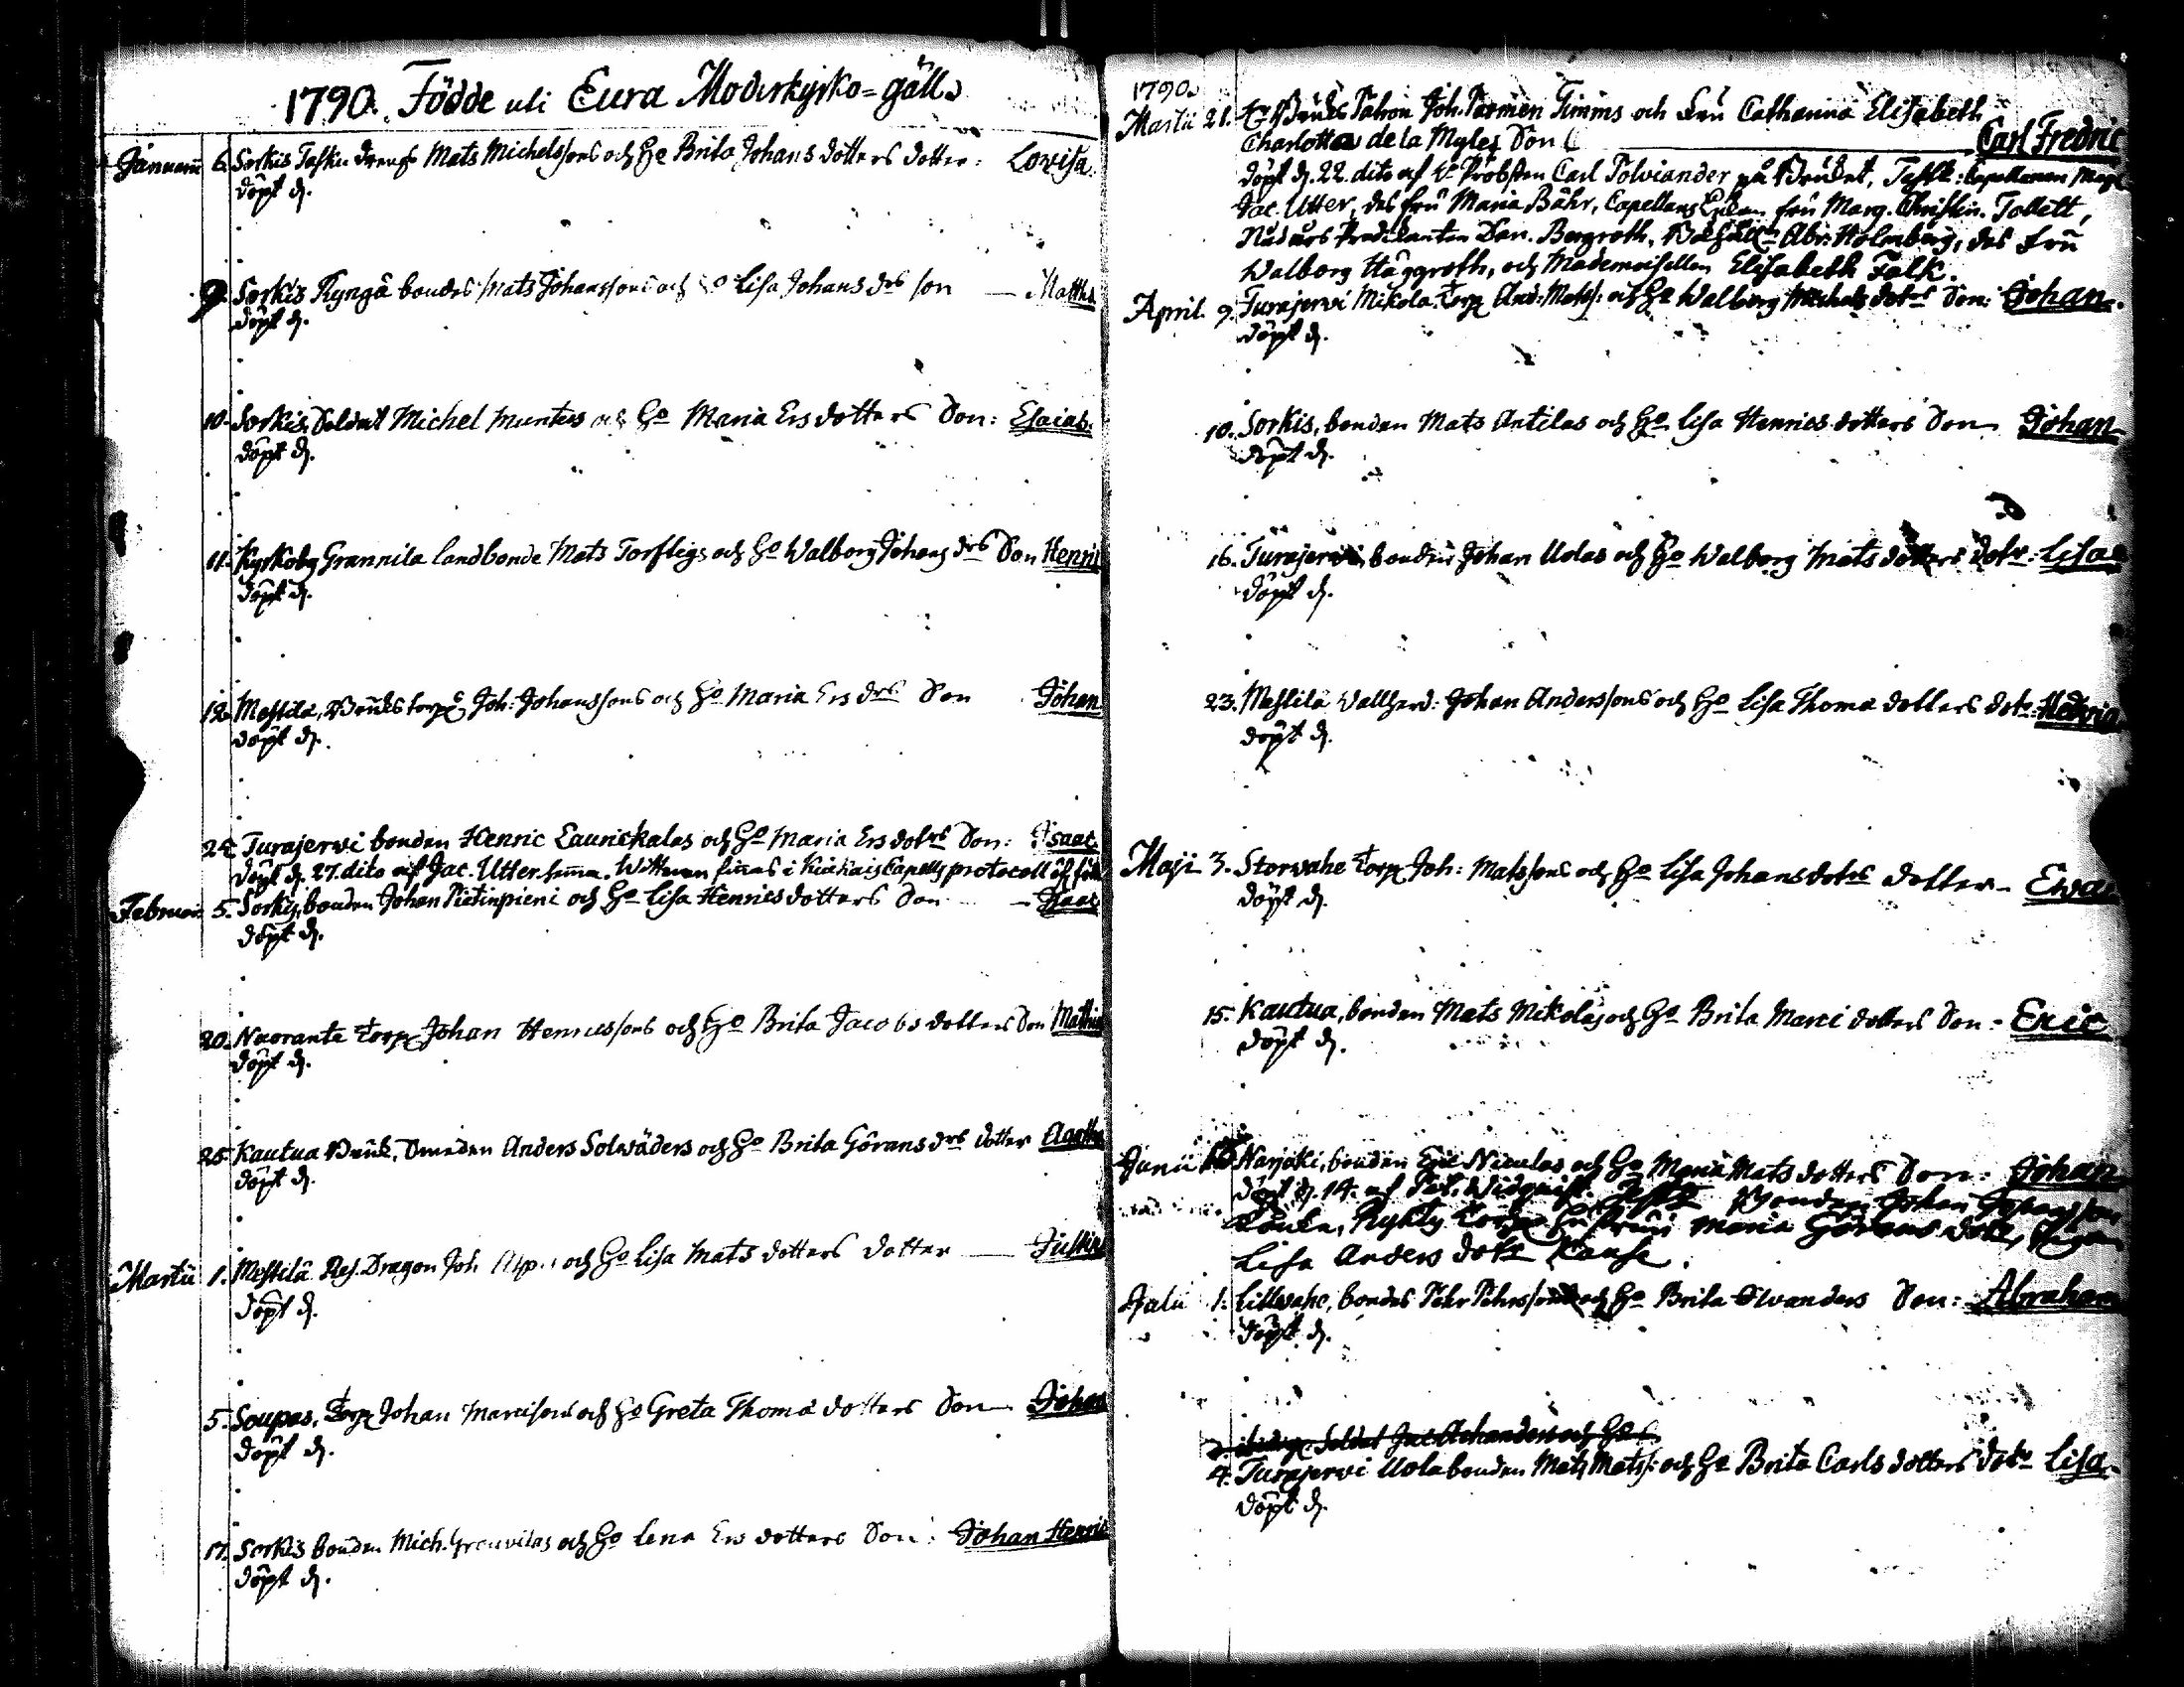 1790. Födde uti Eura Moderkyrko=gäll.
Januarii 6. Sorkis Taskin drengs Mats Michelssons och H:o Brita Johans dotters dotter: Lovisa.
döpt d.
9. Sorkis Kyngä bondes Mats Johanssons och H:o Lisa Johans drs son — Matths
döpt d.
10. Sorkis, Soldat Michel Munters och H:o Maria Ers dotters Son: Esaias.
döpt d.
11. Kyrkoby Grannila landbonde Mats Torfligs och H:o Walborg Johans drs Son Henric
döpt d.
12. Mestilä, Bruks torp. Joh: Johanssons och H:o Maria Ers drs Son Johan
döpt d.
24. Turajervi bonden Henric Laurickalas och H:o Maria Ers dotrs Son: Isaac.
döpt d. 27. dito af Jac. Utter. finnas i Kiukais Capells protocoll
Februarii 5. Sorkis, bonden Johan Pietinpieni och H:o Lisa Henrics dotters Son — Isaac
döpt d.
20. Nuoranta Torp. Johan Henricssons och H:o Brita Jacobs dotters Son Matths
döpt d.
25. Kautua Bruk, Smeden Anders Solväders och H:o Brita Görans drs dotter Agatha
döpt d.
Martii 1. Mestilä Res. Dragon Joh. och H:o Lisa Mats dotters dotter — Justina
döpt d.
5. Soupas, Torp. Johan Marcisons och H:o Greta Thomä dotters Son — Johan
döpt d.
17. Sorkis bonden Mich. Grouvilas och H:o Lena Ers dotters Son: Johan Henric
döpt d.
1790.
Martii 21. Bruks Patron Joh. Parmen Timms och Fru Catharina Elisabeth
Charlotta de la Myles Son Carl Fredric
döpt d. 22. dito af V. Probsten Carl Polviander på Bruket, Test: Capellanen Mag.
Jac. Utter, des fru Maria Bähr, Capellans Enkan fru Marg. Christin. Tollett,
Nådårs Predikanten Dan. Bergroth, Abr. Holmberg, des Fru
Walborg Häggroth, och Mademoisellen Elisabeth Falk.
April. 9. Turajervi Mikola Torp. And: Mats: och H:o Walborg Michels dotrs Son: Johan.
döpt d.
10. Sorkis, bonden Mats Antilas och H:o Lisa Henrics dotters Son Johan
döpt d.
16. Turajervi, bonden Johan Uolas och H:o Walborg Mats dotters dotr: Lisa
döpt d.
23. Mestilä Vallherd: Johan Anderssons och H:o Lisa Thomä dotters dotr: Hedvig
döpt d.
Maji 3. Storvahe Torp. Joh: Matssons och H:o Lisa Johans dotrs dotter — Ewa
döpt d.
15. Kautua, bonden Mats Mikolas och H:o Brita Marci dotters Son — Eric
döpt d.
Junii Narjoki, bonden Eric Niculas och H:o Maria Mats dotters Son: Johan
döpt d. 14. af Bonden Johan
Torp. Hustru Maria Görans dotr,
Lisa Anders dotr
Julii 1. Lillvahe, bondes Pehr Pehrssons och H:o Brita Silvanders Son: Abraham
döpt d.
4. Turajervi Uola bonden Mats Mats: och H:o Brita Carls dotters dotr Lisa.
döpt d.